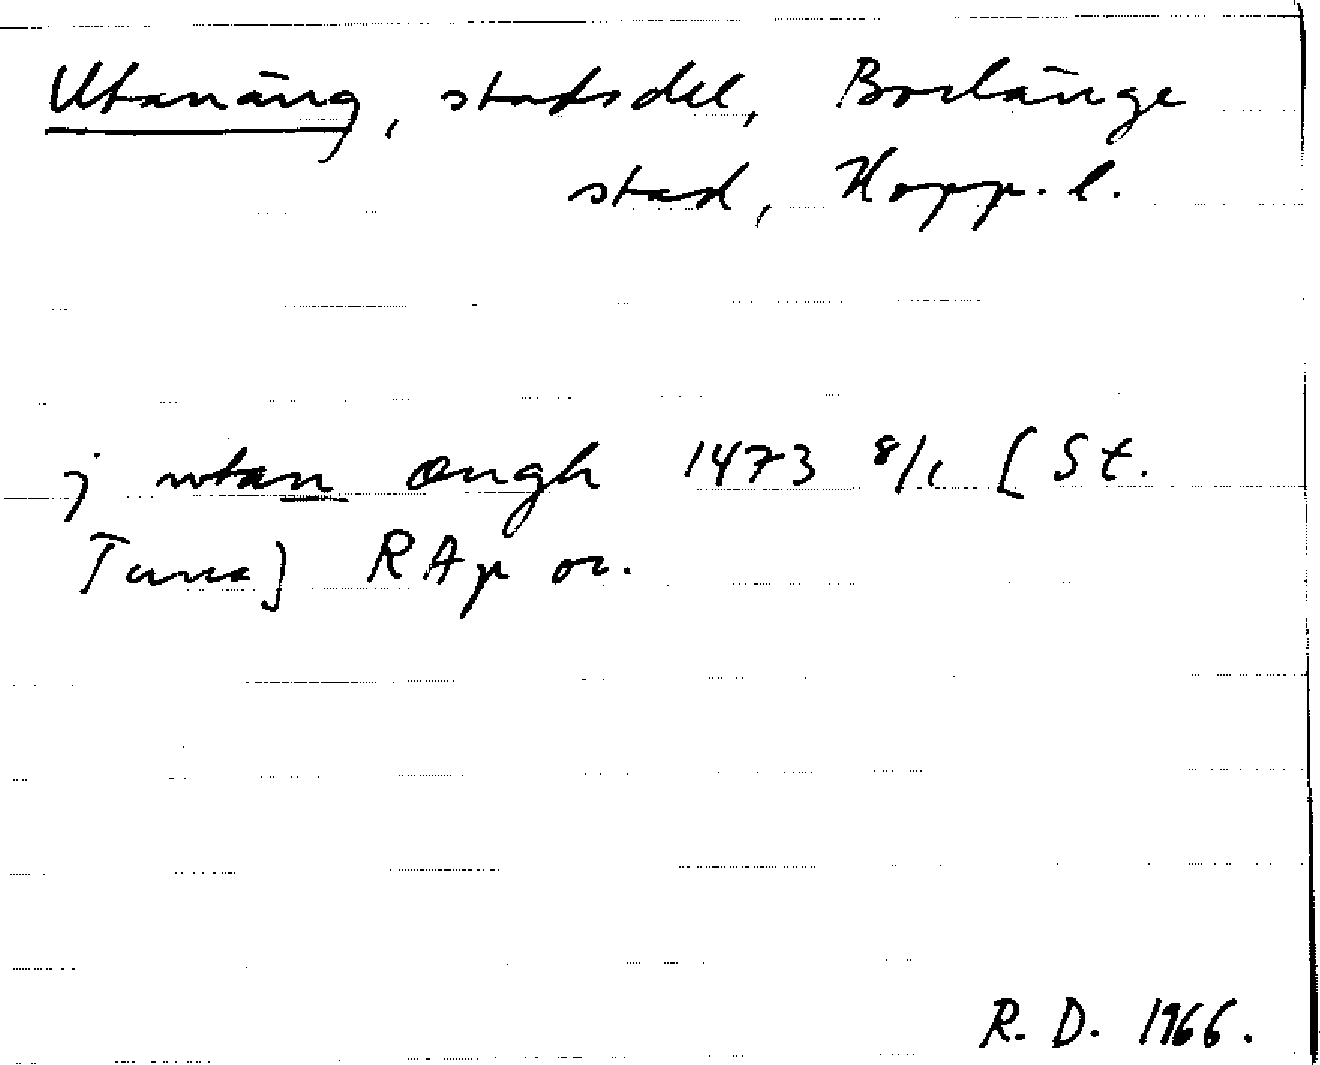 Utanäng, stadsdel, Borlänge
stad, Kopp. l.
j wtan ængh 1473 8/1 [St.
Tuna] RAp or.
R. D. 1966.